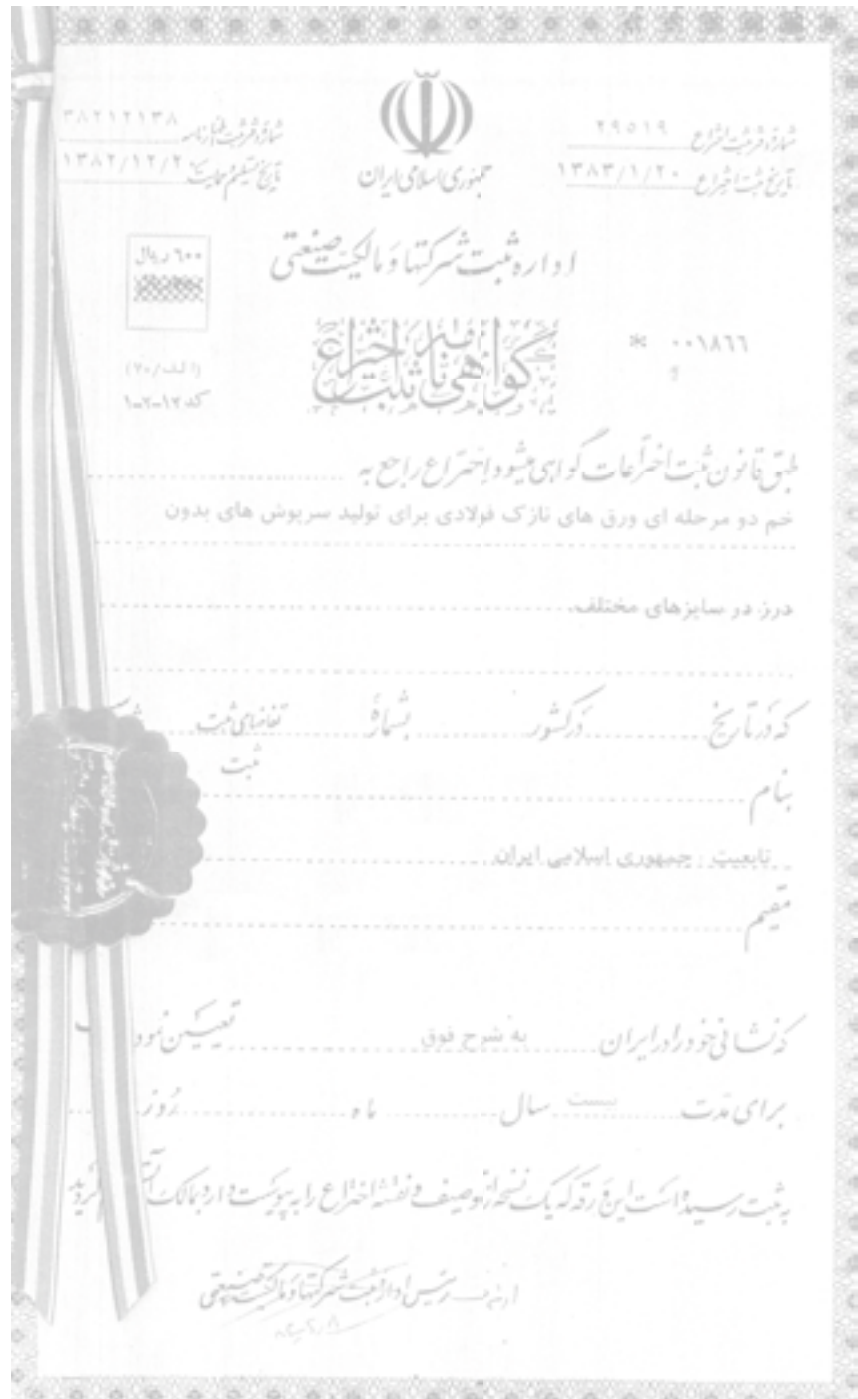 شماره و ثبت اختراع ۲۹۵۱۹
تاریخ ثبت اختراع ۱۳۸۳/۱/۲۰
جمهوری اسلامی ایران
شماره و ثبت اظهارنامه ۳۸۲۱۲۱۳۸
تاریخ تسلیم و حمایت ۱۳۸۲/۱۲/۲
اداره ثبت شرکتها و مالکیت صنعتی
۶۰۰ ریال
گواهی نامه ثبت اختراع
* ۰۰۱۸۶۶
(الف/۷۰)
کد ۱۲-۲-۱
طبق قانون ثبت اختراعات گواهی میشود اختراع راجع به
خم دو مرحله ای ورق های نازک فولادی برای تولید سرپوش های بدون
درز در سایزهای مختلف
که در تاریخ در کشور بشماره تقاضای ثبت
ثبت
بنام
تابعیت : جمهوری اسلامی ایران
مقیم
که نشانی خود را در ایران به شرح فوق تعیین نمود
برای مدت بیست سال ماه روز
به ثبت رسیده است این ورقه که یک نسخه از توصیف و نقشه اختراع را به پیوست دارد بمالک
رئیس اداره ثبت شرکتها و مالکیت صنعتی